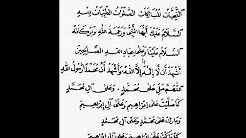 التَّحِيَّاتُ المُبَارَكَاتُ الصَّلَوَاتُ الطَّيِّبَاتُ لِلَّهِ
السَّلَامُ عَلَيْكَ أَيُّهَا النَّبِيُّ وَرَحْمَةُ اللهِ وَبَرَكَاتُهُ
السَّلَامُ عَلَيْنَا وَعَلَى عِبَادِ اللهِ الصَّالِحِينَ
أَشْهَدُ أَنْ لَا إِلَهَ إِلَّا اللهُ وَأَشْهَدُ أَنَّ مُحَمَّدًا رَسُولُ اللهِ
اللَّهُمَّ صَلِّ عَلَى مُحَمَّدٍ وَعَلَى آلِ مُحَمَّدٍ
كَمَا صَلَّيْتَ عَلَى إِبْرَاهِيمَ وَعَلَى آلِ إِبْرَاهِيمَ
وَبَارِكْ عَلَى مُحَمَّدٍ وَعَلَى آلِ مُحَمَّدٍ
إِبْرَاهِيمَ وَعَلَى آلِ إِبْرَاهِيمَ